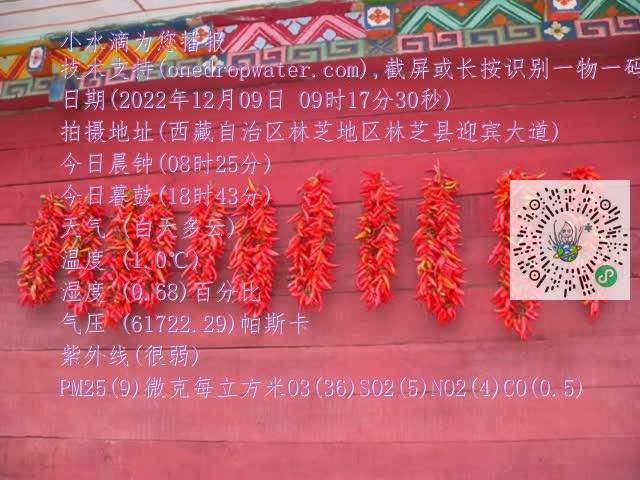 小水滴为您播报
技术支持(onedropwater.com),截屏或长按识别一物一码
日期(2022年12月09日 09时17分30秒)
拍摄地址(西藏自治区林芝地区林芝县迎宾大道)
今日晨钟(08时25分)
今日暮鼓(18时43分)
天气 (白天多云)
温度 (1.0℃)
湿度 (0.68)百分比
气压 (61722.29)帕斯卡
紫外线(很弱)
PM25(9)微克每立方米O3(36)SO2(5)NO2(4)CO(0.5)